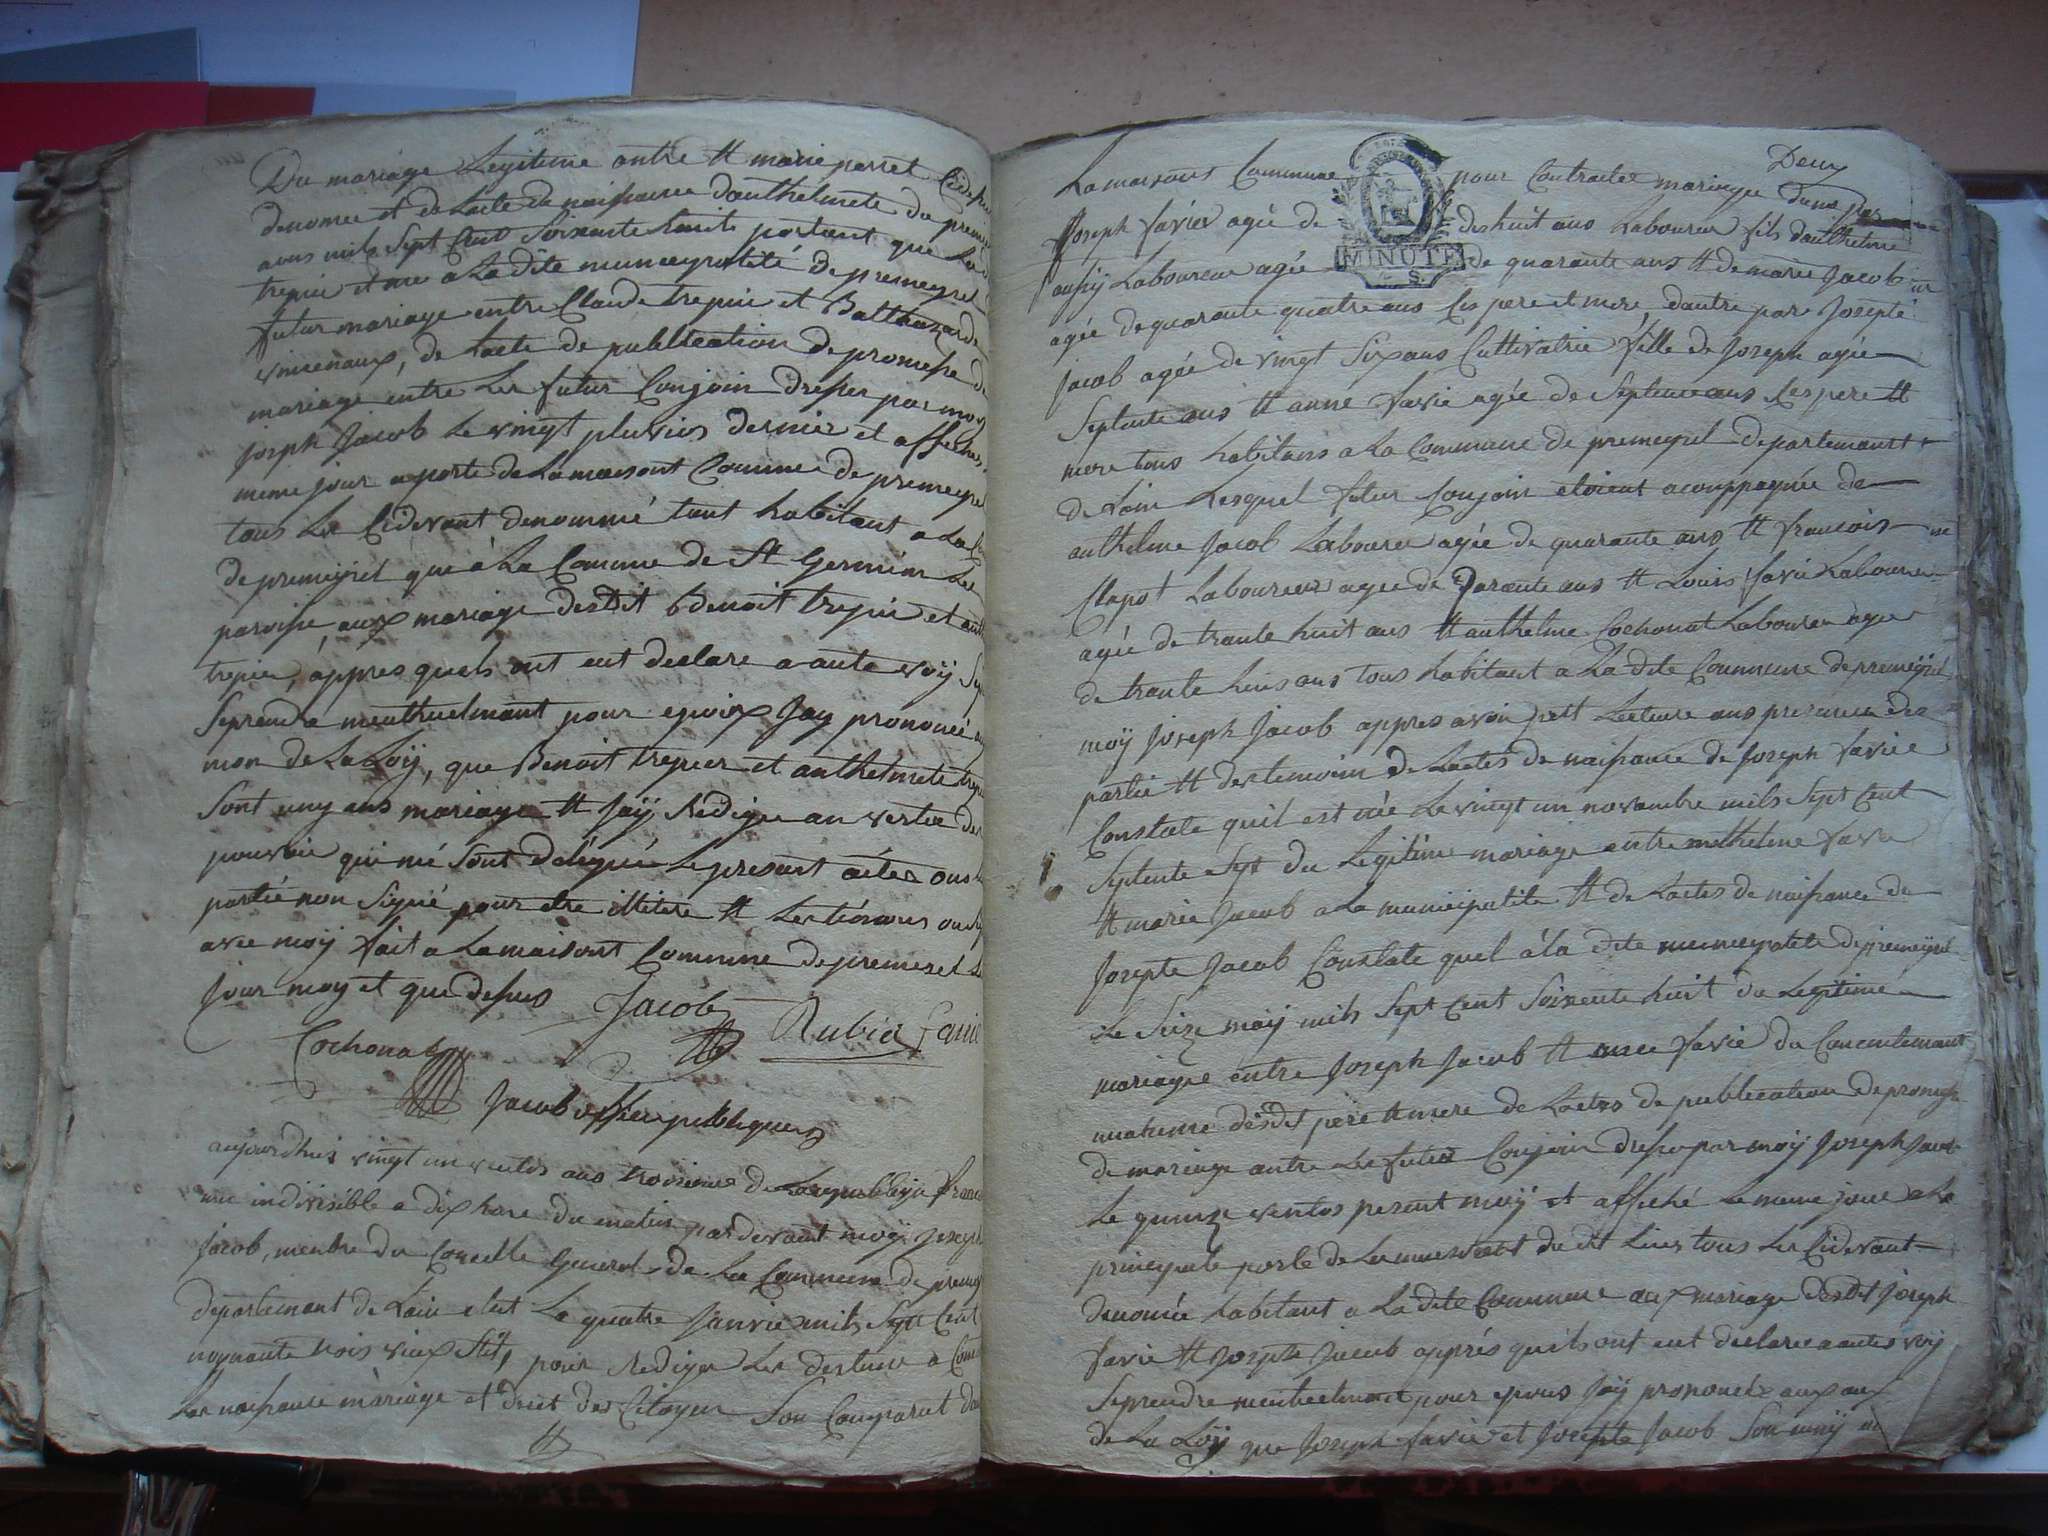 Du mariage Legitime antre tt marie perret Cidessus
denomee et de Lacte de naissance danthelmete du premié
aous mils Sept Cent Soixante huit portant que La
trepier et née a La dite municipalité de premeyzel
futur mariage entre Claude trepier et Balthazarde
vincenaux, de Lacte de publication de promesse de
mariage entre Les futur Conjoin dresser par moy
joseph Jacob Le vingt pluvios dernier et affiches
meme jour a porte de La maisont Comune de premeyzel
tous Les Cidevant denommé tant habitant a La
de premeyzel que à La Comune de St Germain Les
paroisse, aux mariage desdit benoit trepier et ant
trepier, appres quels ont eut declare a aute voÿ
Seprendre meuthuelmant pour epoix Jay prononcé au
non de La Loÿ, que Benoit trepier et anthelmete trepier
Sont uny ans mariage tt jaÿ Redige an vertue des
pouvoir qui mé Sont deléguée Le presant actes ons Les
partié non Signé pour etre illitere tt Les témoins
avec moÿ fait a La maisont Commune de premezel Le
jour moy et que desus
Jacob Rubier favie
Cochonat
Jacob officier publique
aujourdhuis vingt un ventos ans troisieme de La republique fran
une indivisible a dix hore du matin pardevant moÿ joseph
jacob, menbre du Conseille General de La Commune de premey
departemant de Lain elut La quatre Janvier mils Sept Cent
noynante trois vieux Stil, pour Rediger Les
Les naissance mariage et des Citoyen Son Comparut dans
Deux
La maisons Commune pour Contracter mariage dune par
Joseph favier agée de dishuit ans Laboureur fils danthelme
aussy Laboureur agée de quarante ans tt de marie Jacob
agée de quarante quatre ans Ces pere et mere, dautre par Josepte
jacob agée de vingt Six ans Cultivatrie fille de Joseph agée
Septente ans tt anne favie agée de Septente ans Ces pere tt
mere tous habitans a La Commune de premeyzel departemant
de Lain Lesquel futur Conjoin étoient acomppagnée de
anthelme Jacob Laboureur agée de quarante ans tt francois
Clapot Laboureur agée de ans tt Louis favié Laboureur
agée de trante huit ans tt anthelme Cochonat Laboureur agée
de trante ans tous habitant a La dite Commune de premeyzel
moÿ Joseph Jacob appres avoir fett Lecture ans presence des
partie tt des temoim de Lactes de naissance de Joseph favier
Constate quil est née Le vingt un novambre mils Sept Cent
Septente Sept du Legitime mariage entre anthelme favie
tt marie Jacob a La municipalite tt de Lactes de naissance de
Josepte Jacob Constate quel à La dite municipalite de premeyzel
Le Seize moÿ mils Sept Cent Soixante huit du Legitime
mariage entre Joseph Jacob tt anne favie du Concentemant
muatuene desdit pere tt mere de Lactes de publication de promesse
de mariage antre Les futur Conjoin dresse par moÿ Joseph Jacob
Le quinze ventos presant moÿ et affiché Le meme jour a La
principale porte de La maisont du dit Lieu tous Les Cidevant
denomée habitant a La dite Commune aux mariage desdit joseph
favie tt Josepte Jacob apprés quils ont eut declare a autes voÿ
Seprendre meutuelmant pour epous Jaÿ prononcé aux
de La Loÿ que Joseph favié et Josepte Jacob Son uny
MINUTE
S.